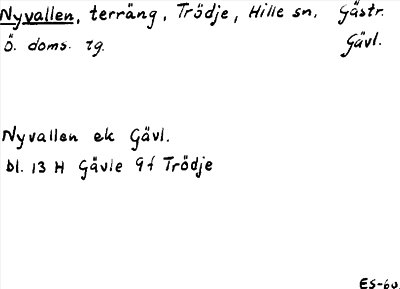 Nyvallen, terräng, Trödje, Hille sn. Gästr.
Ö. doms. rg. Gävl.
Nyvallen ek Gävl.
Bl. 13 H Gävle 9f Trödje
ES-60.